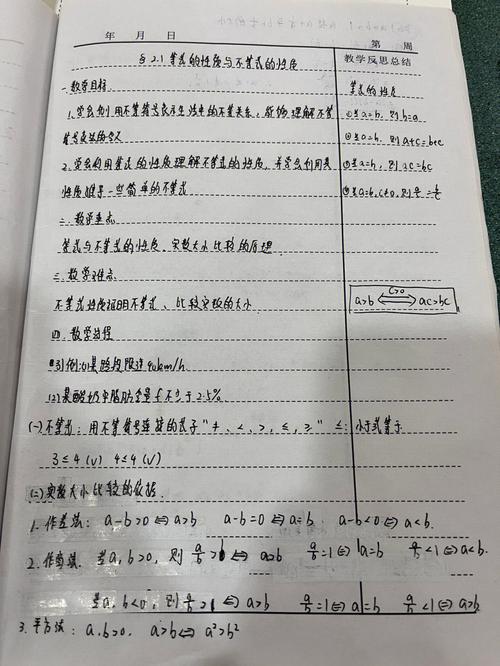 年 月 日 第 周
§2.1 等式的性质与不等式的性质
教学反思总结
一.教学目标
1.学会用不等符号表示生活中的不等关系,能够理解不等
符号表达的含义
2.学会利用等式的性质理解不等式的性质,并学会利用其
性质推导一些简单的不等式
二.教学重点
等式与不等式的性质、实数大小比较的原理
三.教学难点
不等式性质证明不等式、比较实数的大小
四.教学过程
例:(1)某路段限速40km/h
(2)某酸奶中脂肪含量f不少于2.5%
(一)不等式:用不等符号连接的式子"≠、<、>、≤、≥" ≤:小于或等于
3≤4(√) 4≤4(√)
(二)实数大小比较的依据
1.作差法: a-b>0⇔a>b a-b=0⇔a=b. a-b<0⇔a<b.
2.作商法. 若a,b>0, 则 a/b>1⇔a>b a/b=1⇔a=b a/b<1⇔a<b.
若a,b<0, 则 a/b>1⇔a>b a/b=1⇔a=b a/b<1⇔a>b
3.平方法: a,b>0, a>b⇔a²>b²
等式的性质
①若a=b, 则b=a
②若a=b, 则a+c=b+c
③若a=b, 则ac=bc
④若a=b,c≠0,则a/c=b/c
a>b ⇔ ac>bc
c>0